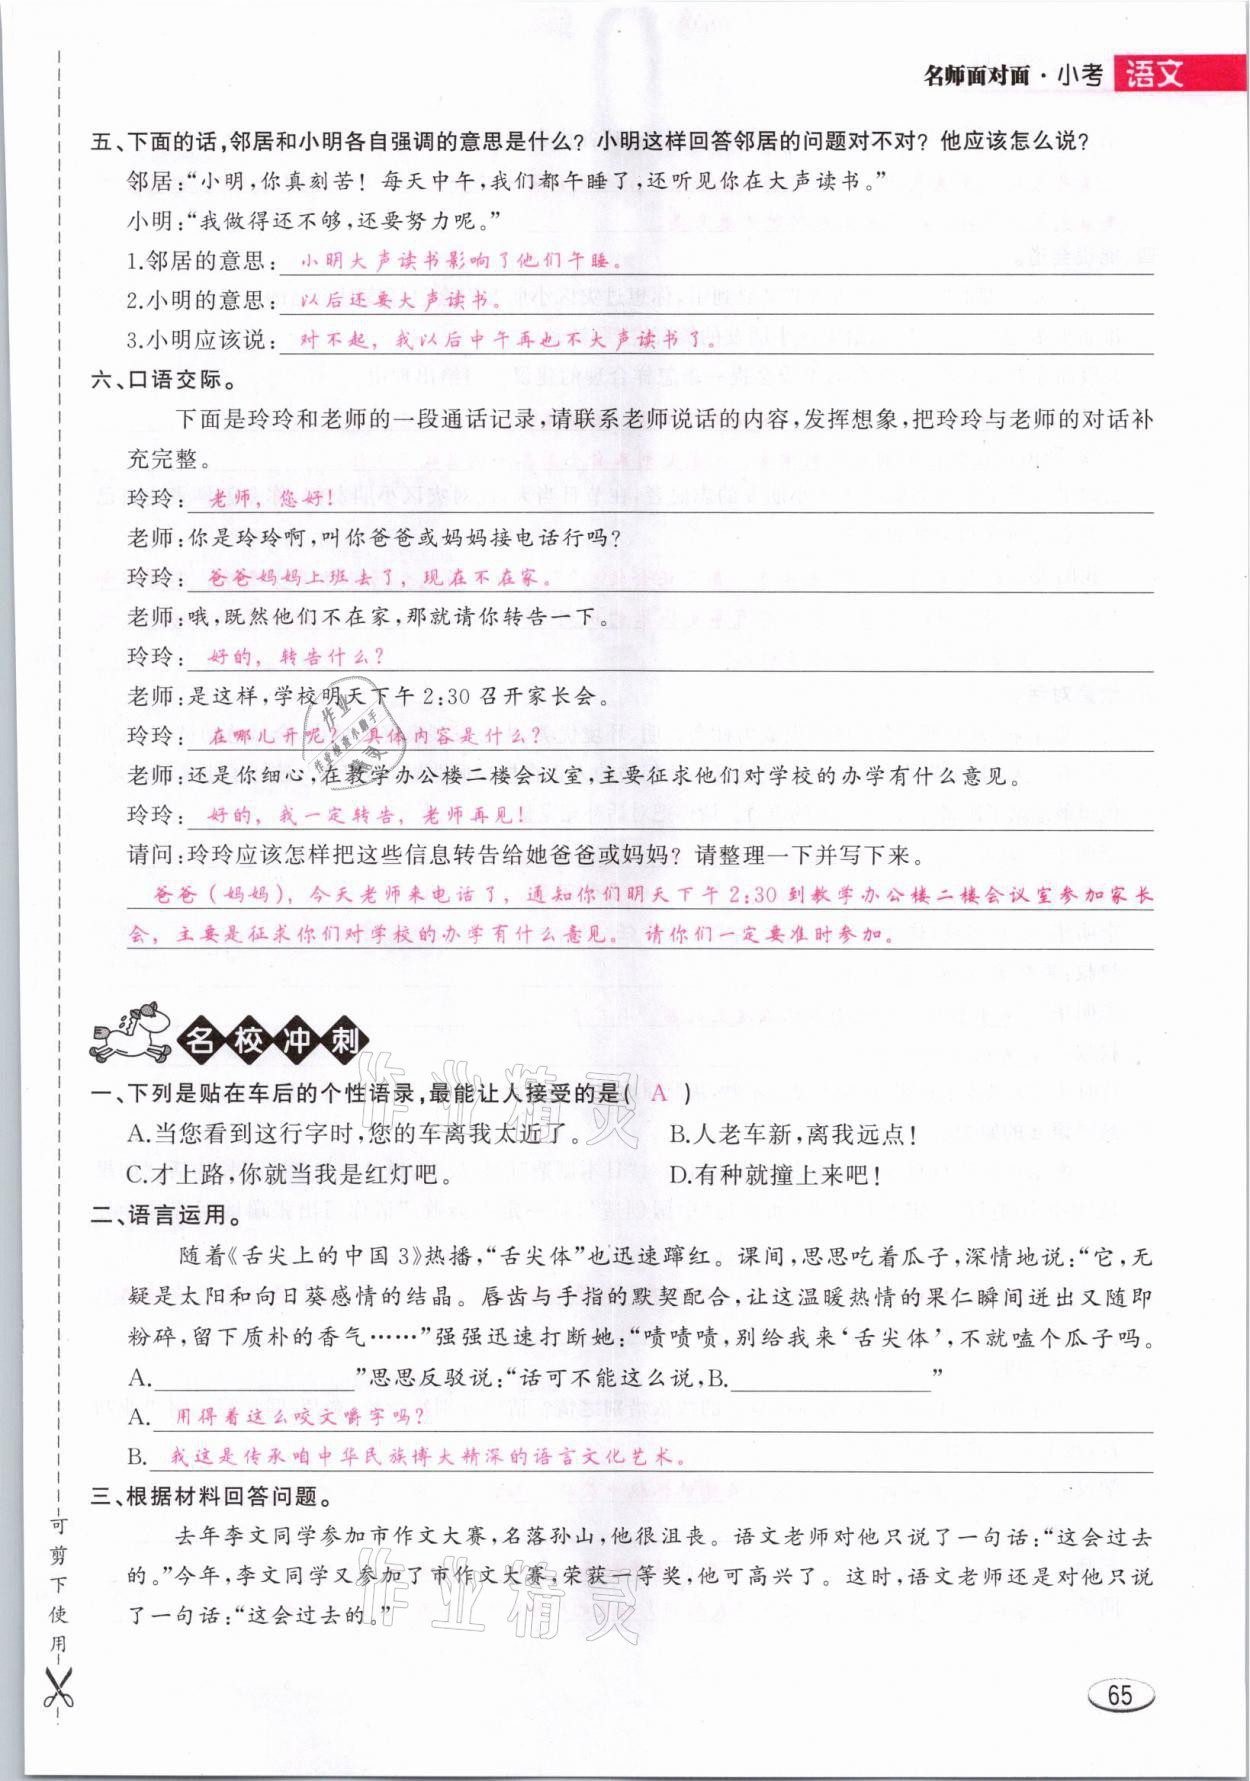 名师面对面·小考 语文
五、下面的话,邻居和小明各自强调的意思是什么?小明这样回答邻居的问题对不对?他应该怎么说?
邻居:“小明,你真刻苦!每天中午,我们都午睡了,还听见你在大声读书。”
小明:“我做得还不够,还要努力呢。”
1.邻居的意思: 小明大声读书影响了他们午睡。
2.小明的意思: 以后还要大声读书。
3.小明应该说: 对不起,我以后中午再也不大声读书了。
六、口语交际。
下面是玲玲和老师的一段通话记录,请联系老师说话的内容,发挥想象,把玲玲与老师的对话补
充完整。
玲玲: 老师,您好!
老师:你是玲玲啊,叫你爸爸或妈妈接电话行吗?
玲玲: 爸爸妈妈上班去了,现在不在家。
老师:哦,既然他们不在家,那就请你转告一下。
玲玲: 好的,转告什么?
老师:是这样,学校明天下午2:30召开家长会。
玲玲: 在哪儿开呢?具体内容是什么?
老师:还是你细心,在教学办公楼二楼会议室,主要征求他们对学校的办学有什么意见。
玲玲: 好的,我一定转告,老师再见!
请问:玲玲应该怎样把这些信息转告给她爸爸或妈妈?请整理一下并写下来。
爸爸(妈妈),今天老师来电话了,通知你们明天下午2:30到教学办公楼二楼会议室参加家长
会,主要是征求你们对学校的办学有什么意见。请你们一定要准时参加。
名校冲刺
一、下列是贴在车后的个性语录,最能让人接受的是( A )
A.当您看到这行字时,您的车离我太近了。 B.人老车新,离我远点!
C.才上路,你就当我是红灯吧。 D.有种就撞上来吧!
二、语言运用。
随着《舌尖上的中国3》热播,“舌尖体”也迅速蹿红。课间,思思吃着瓜子,深情地说:“它,无
疑是太阳和向日葵感情的结晶。唇齿与手指的默契配合,让这温暖热情的果仁瞬间迸出又随即
粉碎,留下质朴的香气……”强强迅速打断她:“啧啧啧,别给我来‘舌尖体’,不就嗑个瓜子吗。
A.”思思反驳说:“话可不能这么说,B.”
A. 用得着这么咬文嚼字吗?
B. 我这是传承咱中华民族博大精深的语言文化艺术。
三、根据材料回答问题。
去年李文同学参加市作文大赛,名落孙山,他很沮丧。语文老师对他只说了一句话:“这会过去
的。”今年,李文同学又参加了市作文大赛,荣获一等奖,他可高兴了。这时,语文老师还是对他只说
了一句话:“这会过去的。”
可剪下使用
65
作业精灵
作业精灵
作业
作业检查小助手
精灵